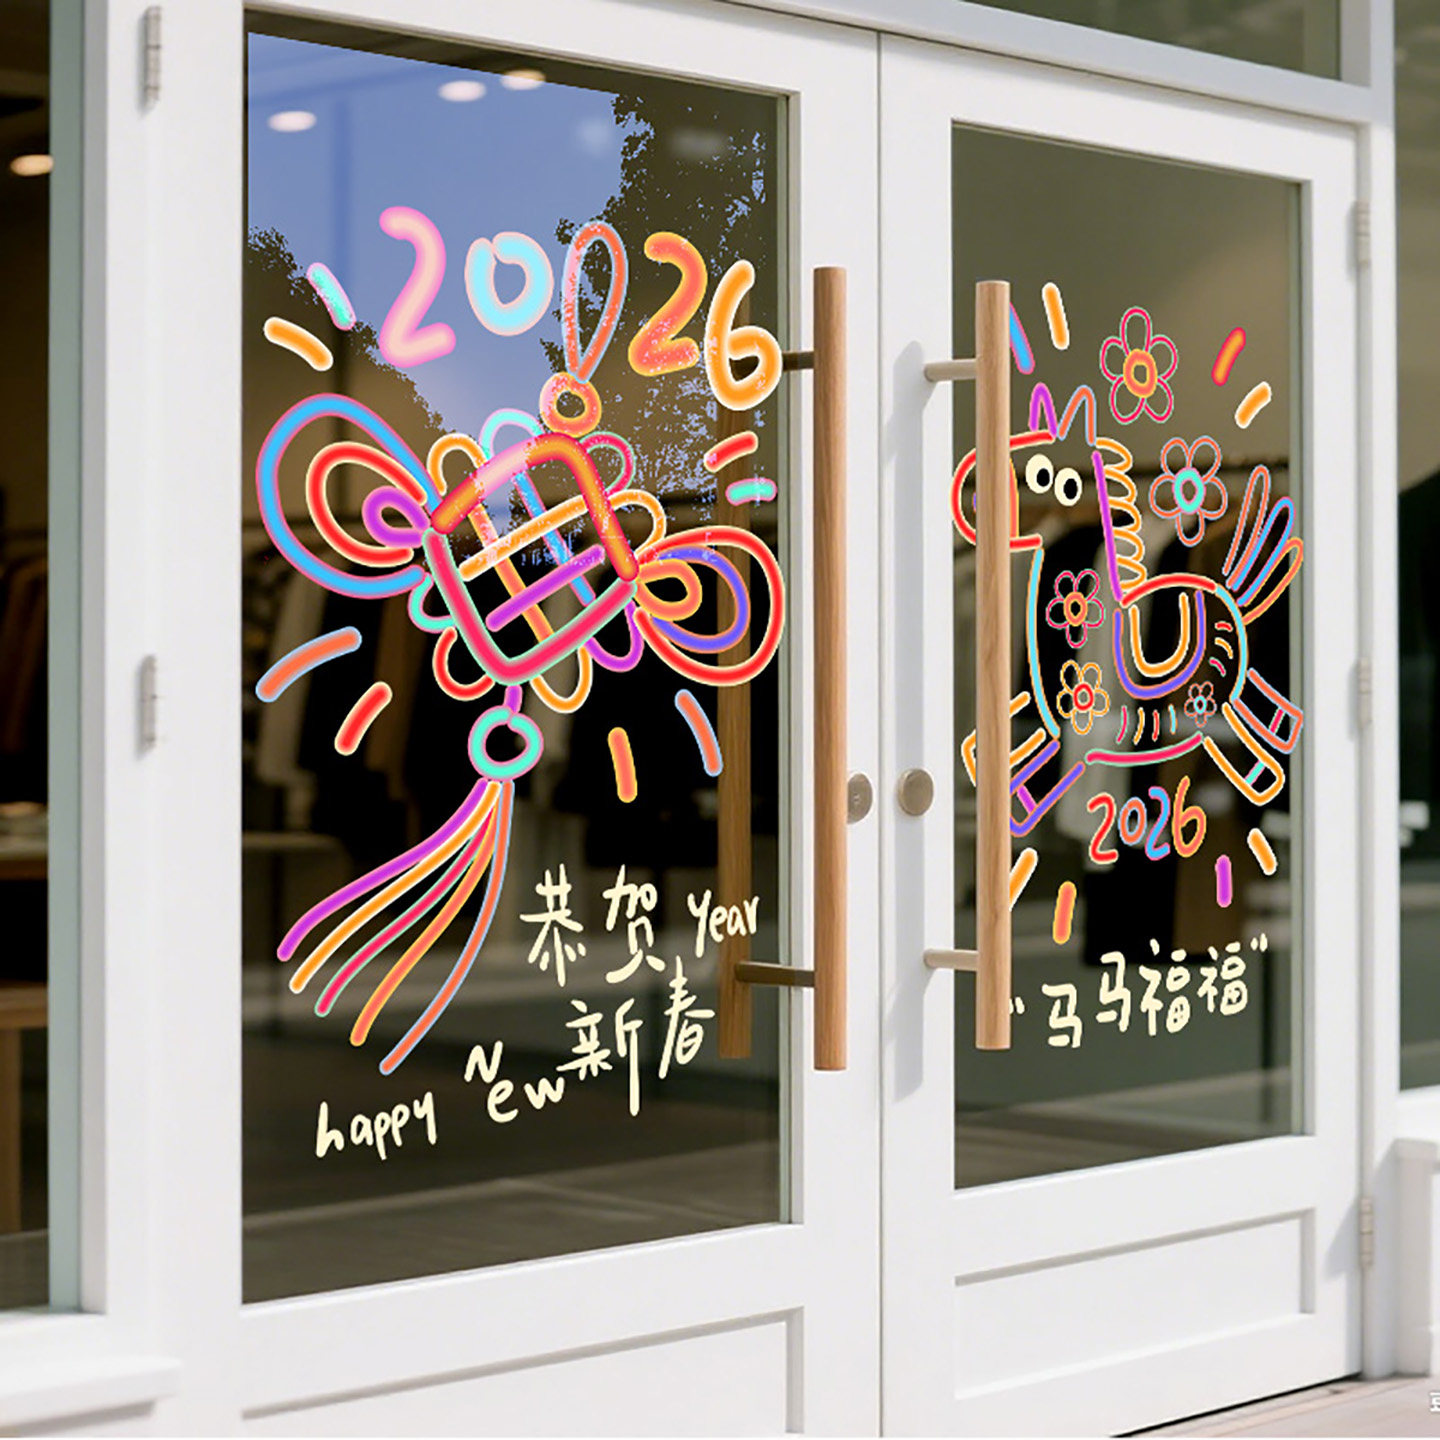 2026
恭贺 year
新春
happy New
2026
"马马福福"